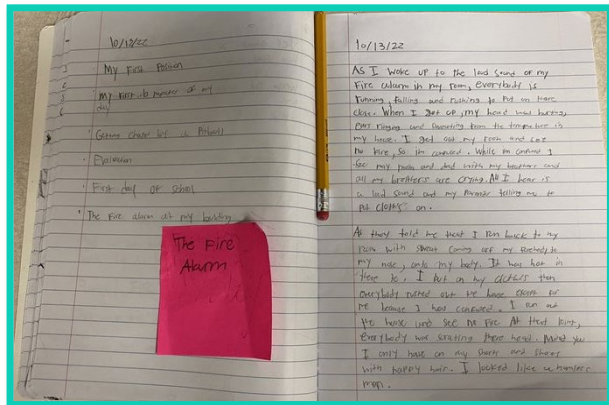 10/12/22
My First
My First number of my
day
Getting chase by a Pitbull
Evaluation
First day of school
The Fire alarm at my building
The Fire
Alarm
10/13/22
As I woke up to the loud sound of my
Fire alarm in my room, everybody is
running, falling and rushing to Put on there
close. When I got up, my head was hurting,
ears ringing and sweating from the temperature in
my house. I get out my room and see
no fire, so im confused. While im confused I
see my mom and dad with my brothers and
all my brothers are crying. All I hear is
a loud sound and my Parents telling me to
Put cloths on.
As they told me that I ran back to my
room with sweat coming off my forehead to
my nose, onto my body. It was hot in
there to. I Put on my cloths then
everybody rushed out the house except for
me because I was confused. I run out
the house and see no fire. At that point,
everybody was scratching there head. Mind you
I only have on my shorts and shoes
with nappy hair. I looked like a homeless
man.